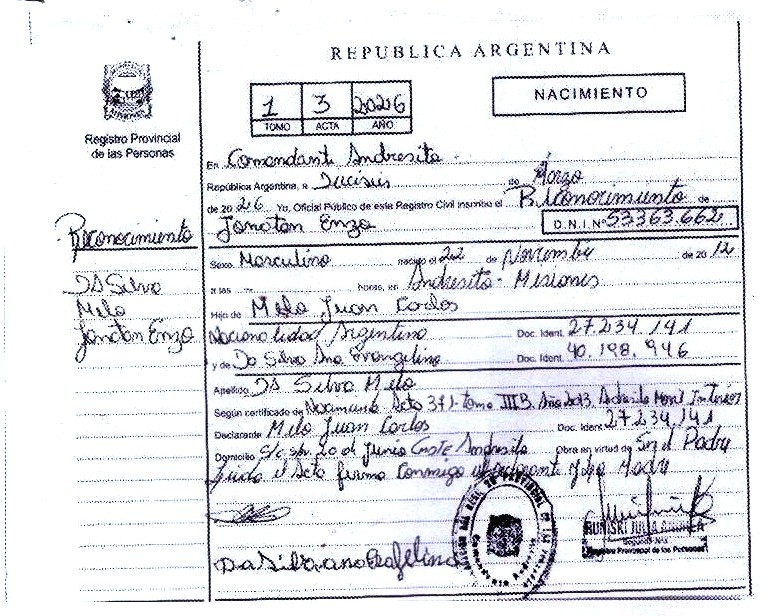 REPUBLICA ARGENTINA
Registro Provincial
de las Personas
1 3 2026
TOMO ACTA AÑO
NACIMIENTO
En Comandante Andresito
República Argentina, a Dieciseis de Marzo
de 2026 Yo, Oficial Público de este Registro Civil inscribo el Reconocimiento de
Jonatan Enzo D.N.I.Nº 53363.662
Reconocimiento
Da Silva
Melo
Jonatan Enzo
Sexo Masculino nacido el 22 de Noviembre de 2012
a las horas, en Andresito - Misiones
Hijo de Melo Juan Carlos
Nacionalidad Argentino Doc. Ident. 27.234.141
y de Da Silva Ana Evangelina Doc. Ident. 40.198.946
Apellido Da Silva Melo
Según certificado de Nacimiento Acta 371 tomo III B. Año 2013. Andresito
Declarante Melo Juan Carlos Doc. Ident. 27.234.141
Domicilio 20 de Junio Andresito Obra en virtud de Ser el Padre
Leída el Acta firma Conmigo el declarante y la Madre
Registro Provincial de las Personas